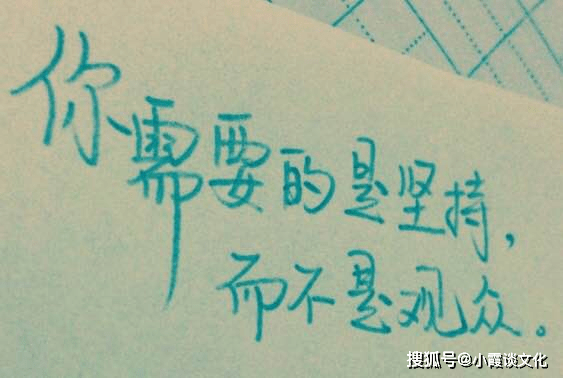 你需要的是坚持，
而不是观众。
搜狐号@小霞谈文化